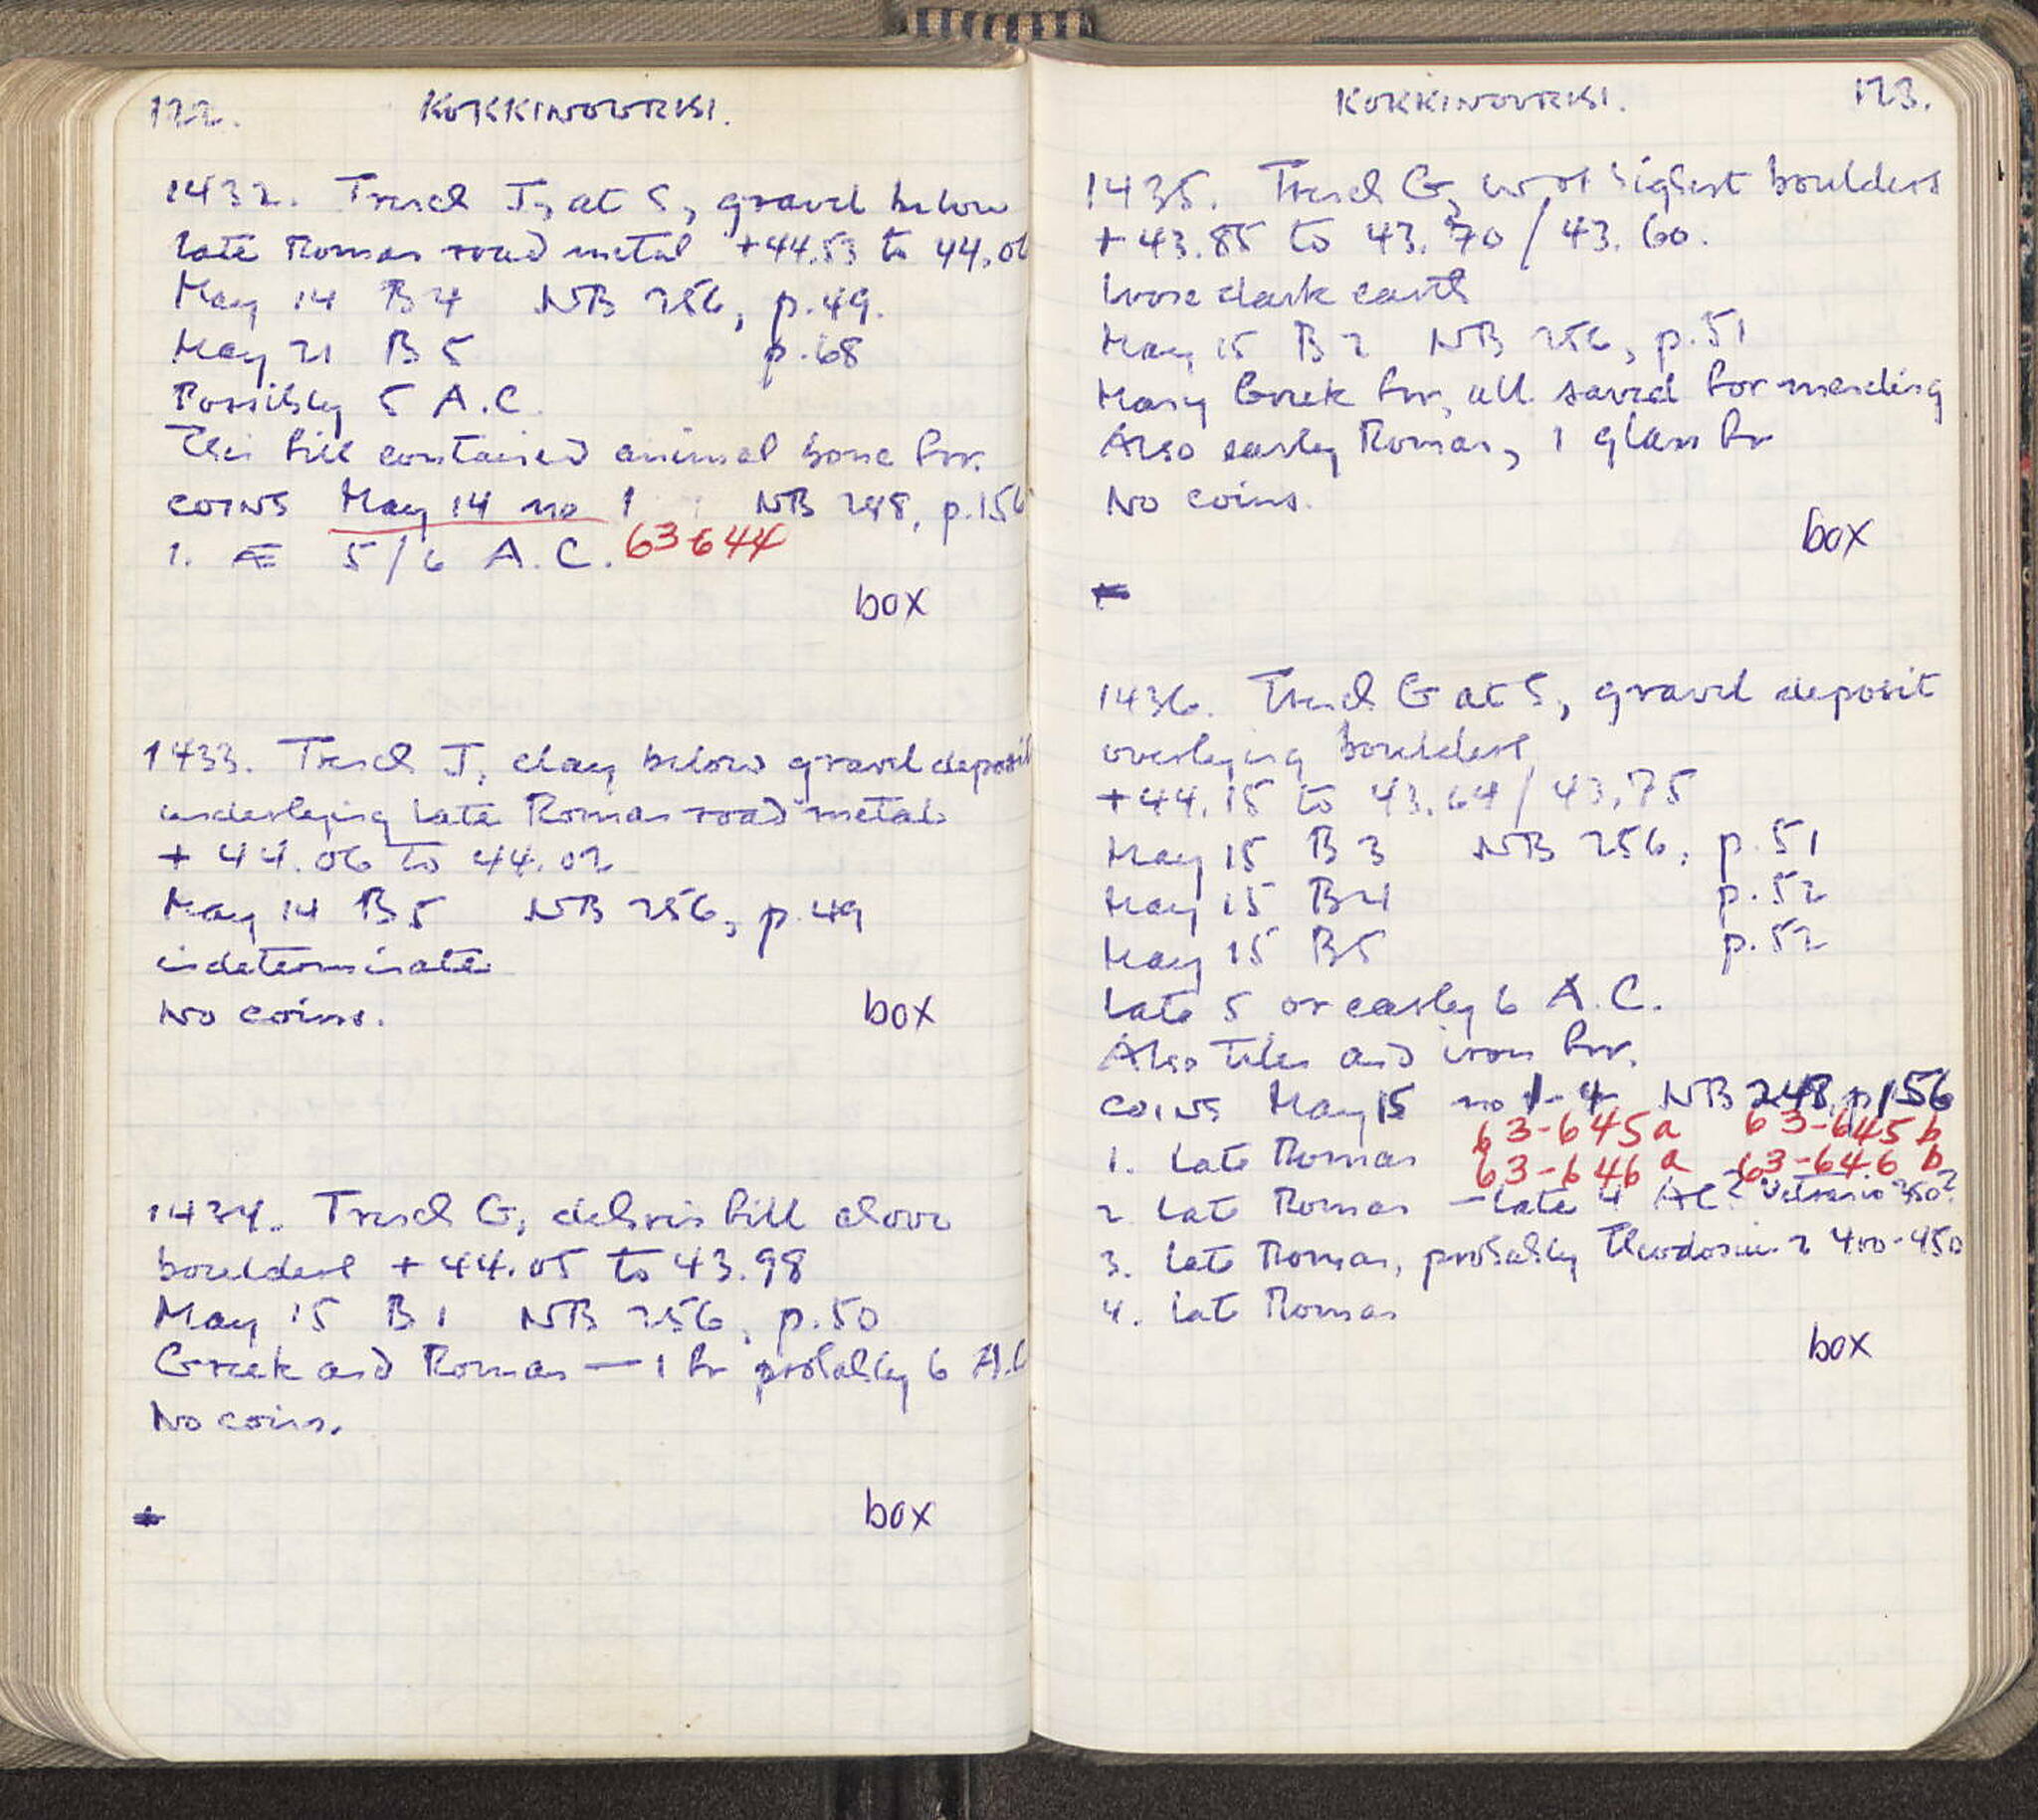 122.
KOKKINOVRYSI.
1432. Trench J, at S, gravel below
late Roman road metal +44.53 to 44.06
May 14 B4 NB 256, p.49.
May 21 B5 p.68
Possibly 5 A.C.
This fill contained animal bone frr.
coins May 14 no 1 NB 248, p.156
1. Æ 5/6 A.C. 63 644
box
1433. Trench J, clay below gravel deposit
underlying late Roman road metal
+ 44.06 to 44.02
May 14 B5 NB 256, p.49
indeterminate
No coins.
box
1434. Trench G, debris fill above
boulders +44.05 to 43.98
May 15 B1 NB 256, p.50
Greek and Roman — 1 fr probably 6 A.C
No coins.
box
KOKKINOVRYSI.
123.
1435. Trench G, w of highest boulders
+43.85 to 43.70/43.60.
loose dark earth
May 15 B2 NB 256, p.51
Many Greek frr, all saved for mending
Also early Roman, 1 glass fr
No coins.
box
1436. Trench G at S, gravel deposit
overlying boulders
+44.15 to 43.64/43.75
May 15 B3 NB 256, p.51
May 15 B4 p.52
May 15 B5 p.52
Late 5 or early 6 A.C.
Also tiles and iron frr.
coins May 15 no 1-4 NB 248, p156
63-645a 63-645b
1. Late Roman 63-646a 63-646b
2 Late Roman — late 4 AC? Vetranio 350?
3. Late Roman, probably Theodosius 2 400-450
4. Late Roman
box